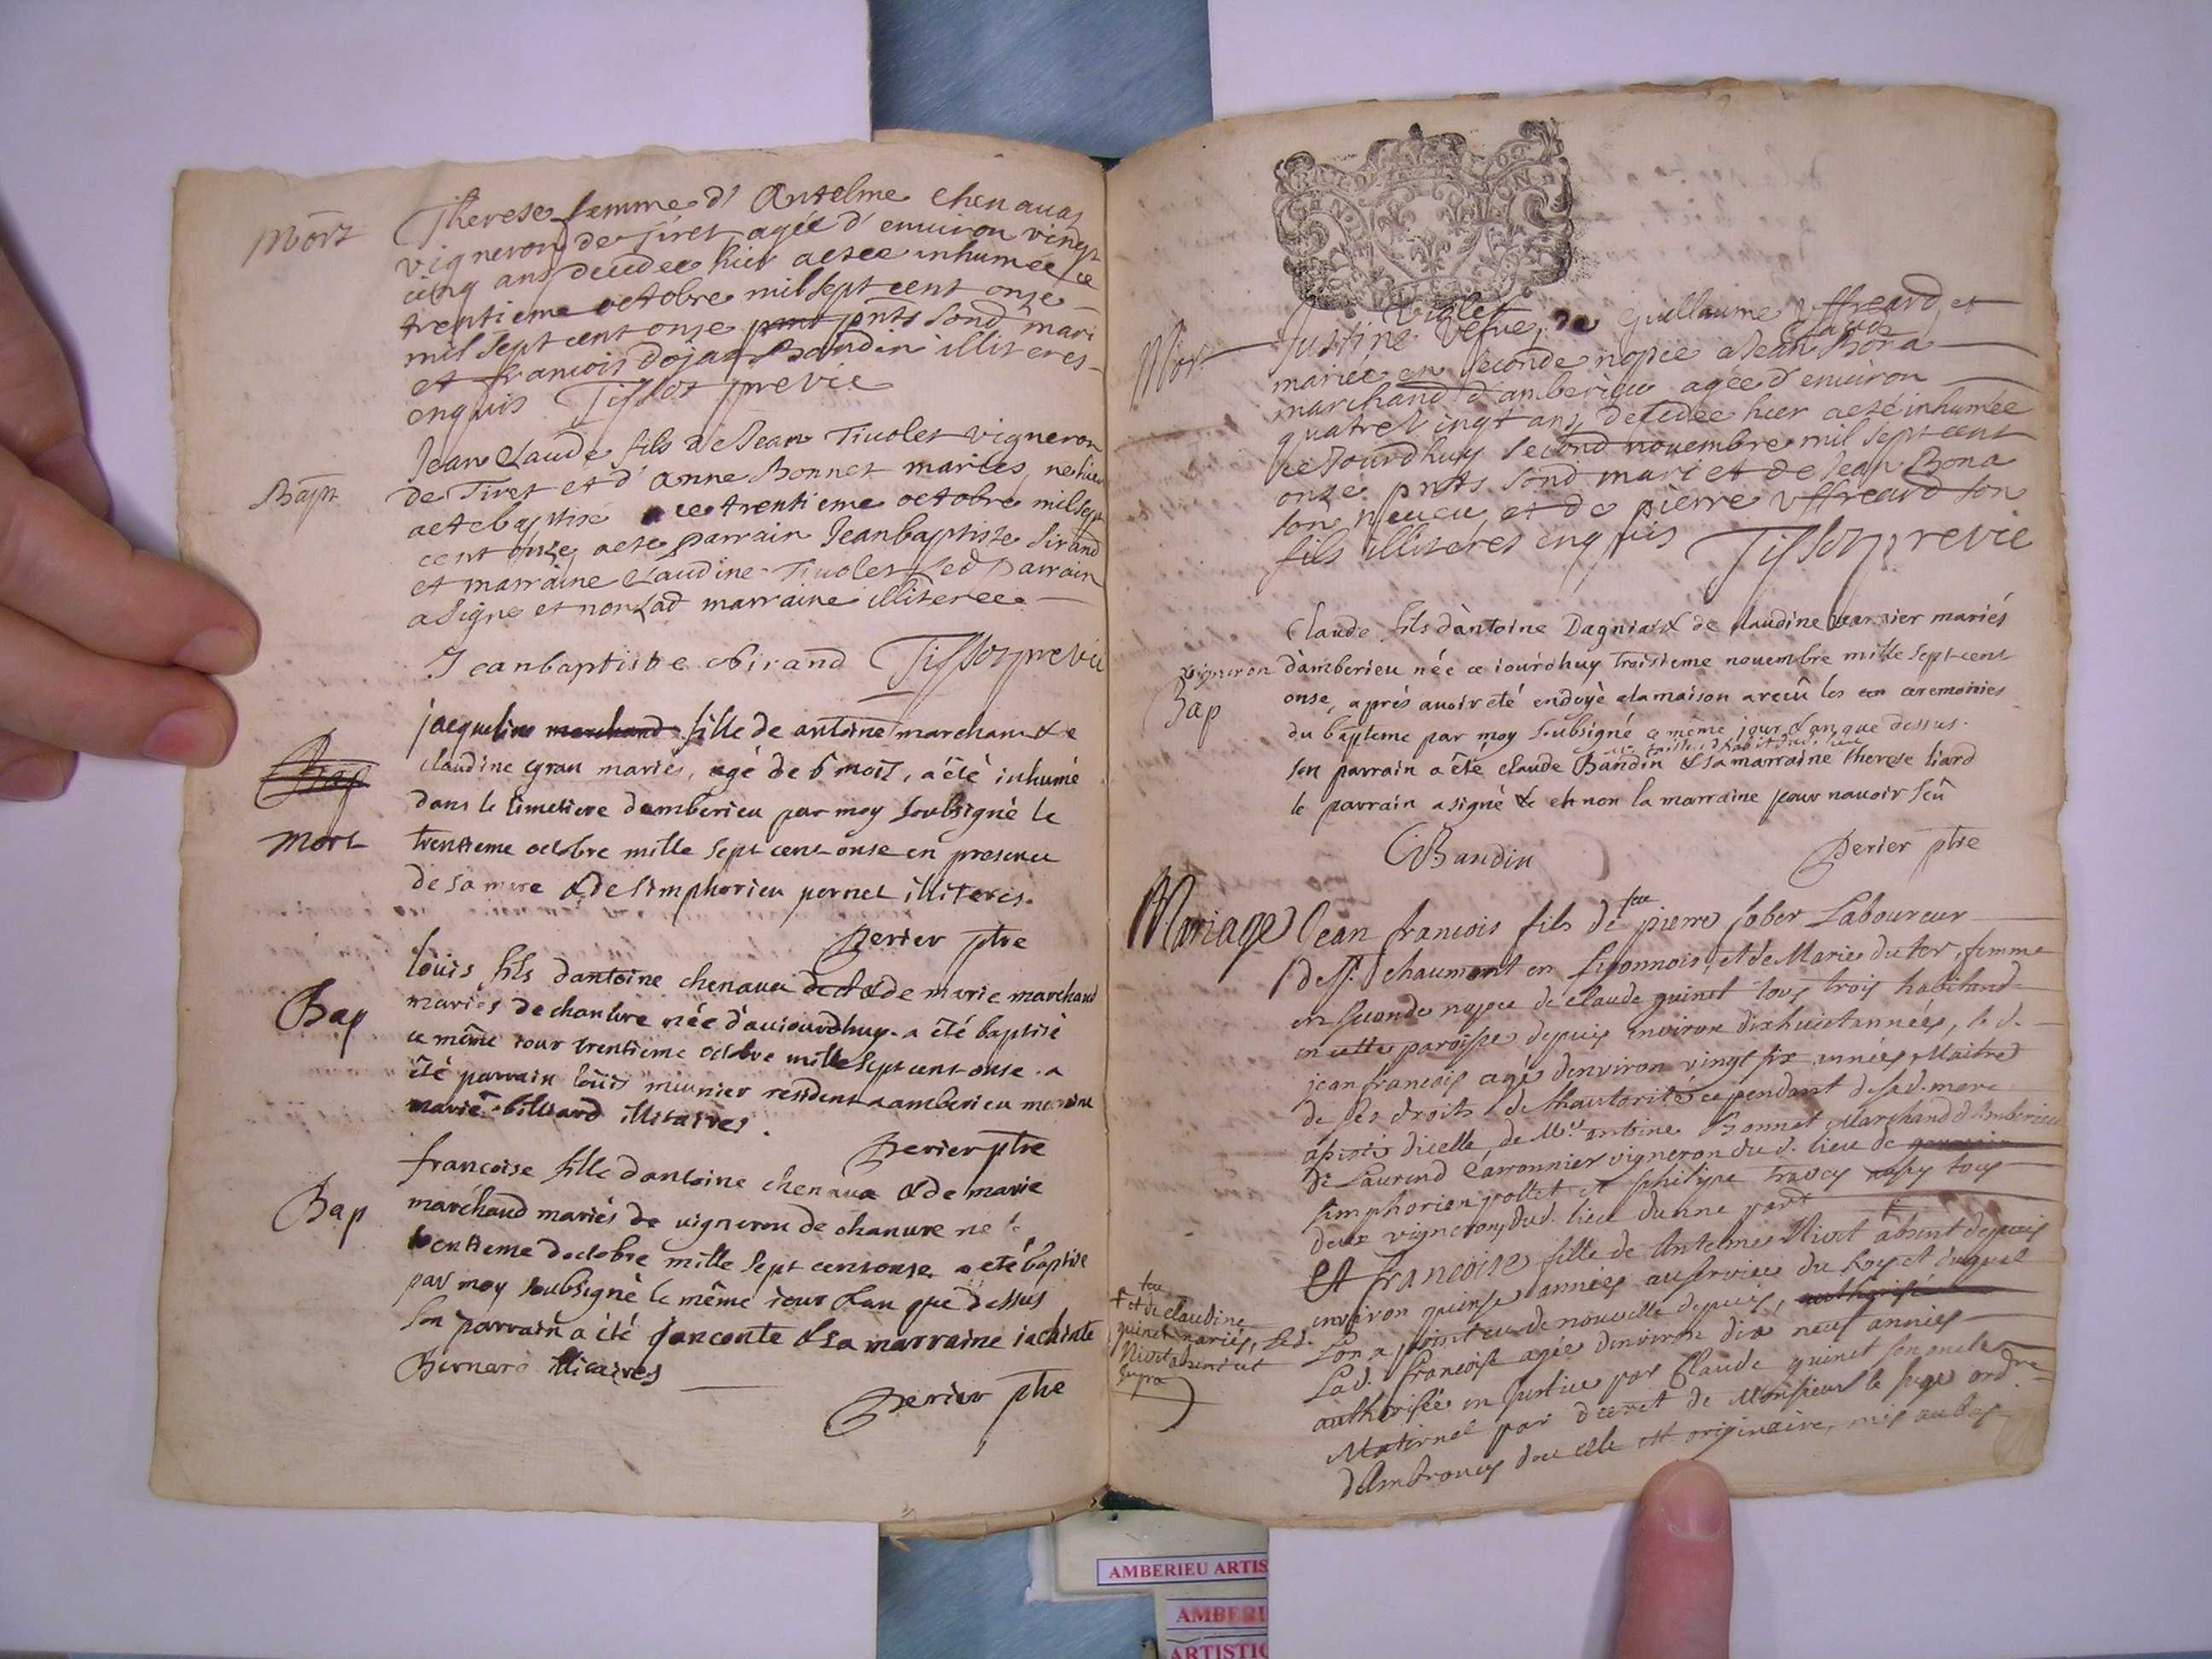 Mort
Therese femme d'Antelme chenauas
vigneron de tiret agée d'enuiron vingt
cinq ans decedee hier aetee inhumée ce
trentieme octobre mil sept cent onze
mil sept cent onze pnts sond mari
et francois dojat Baudin illiteres
enquis Tissot previc
Bapt
Jean Claude fils de Jean Tiuolet vigneron
de Tiret et d'anne Bonnet mariés, ne hier
aete baptisé ce trentieme octobre mil sept
cent onze, aete parrain Jean baptiste Sirand
et marraine Claudine Tiuolet Led parrain
a Signe et non Lad marraine illiteree
Jean baptiste Sirand Tissot previc
Bap
mort
jacqueline marchand fille de antoine marchand & de
claudine gran mariés, agé de 6 mois, a été inhumé
dans le simetiere damberieu par moy soubsigné le
trentieme octobre mille sept cent onse en presence
de sa mere & de simphorien pernet illiteres.
Derier ptre
Bap
louis fils dantoine chenaua & de marie marchand
mariés de chanure née d'auiourdhuy a été baptisé
ce même iour trentieme octobre mille sept cent onse. a
été parrain louis miunier resident a amberieu maraine
marie billiard illitaires.
Derier ptre
Bap
francoise fille dantoine chenaua & de marie
marchaud mariés de uigneron de chanure ne le
trentieme doctobre mille sept cent onse a eté baptise
par moy soubsigné le même iour & an que dessus
son parrain a été janconte & sa marraine iachinte
Bernard illitaires
Derier ptre
Mort
Violet
Justine vefue de Guillaume Uffreard, et
mariée en seconde nopce a Jean Claude Bona
marchand d'amberieu agée d'enuiron
quatre vingt ans decedee hier aeté inhumée
ce Jourdhuy second nouembre mil sept cent
onze pnts sond mari et de Jean Bona
son neueu et de pierre Uffreard son
fils illiteres enquis Tissot previc
vigneron
Bap
Claude fils d'antoine Dagniat & de claudine uarnier mariés
d'amberieu née ce iourdhuy troisieme nouembre mille sept cent
onse, aprés auoir eté endoyé a la maison a recû les ceremonies
du bapteme par moy soubsigné ce même jour & an que dessus.
son parrain a été claude Baudin & sa marraine therese liard
le parrain a signé & et non la marraine pour nauoir sçû
CBaudin Derier ptre
Mariage
Jean francois fils de feu pierre Jober Laboureur
de St. chaumont en lyonnois, et de Marie duter, femme
en seconde nopce de claude quinet tous trois habitand
en cette paroisse depuis environ dix huict années, le d.
jean francois agé denviron vingt six années Maitre
de ses droits, de Lhautorité cependant de sa d. mere
assisté dicelle, de Mre antoine Bonnet Marchand d'Amberieu
de Laurend Caronnier vigneron du d. lieu de
simphorien pollet et philipe Travey tous
deux vignerons dud. lieu dunne part
Et francoise fille de Antelme Nivet absent depuis
environ quinse années au service du Roy et duquel
Lon a point eu de nouvelle depuis, authorisé
Lad. francoise agée denviron dix neuf années
authorisée en Justice par Claude quinet son oncle
Maternel par decret de Monsieur le juge ordre
dAmbronay dou elle est originaire, mis au bas
feu
+ et de claudine
quinet mariés, Led.
Nivet absent ut
supra
AMBERIEU ARTIS
AMBERI
ARTISTIQ